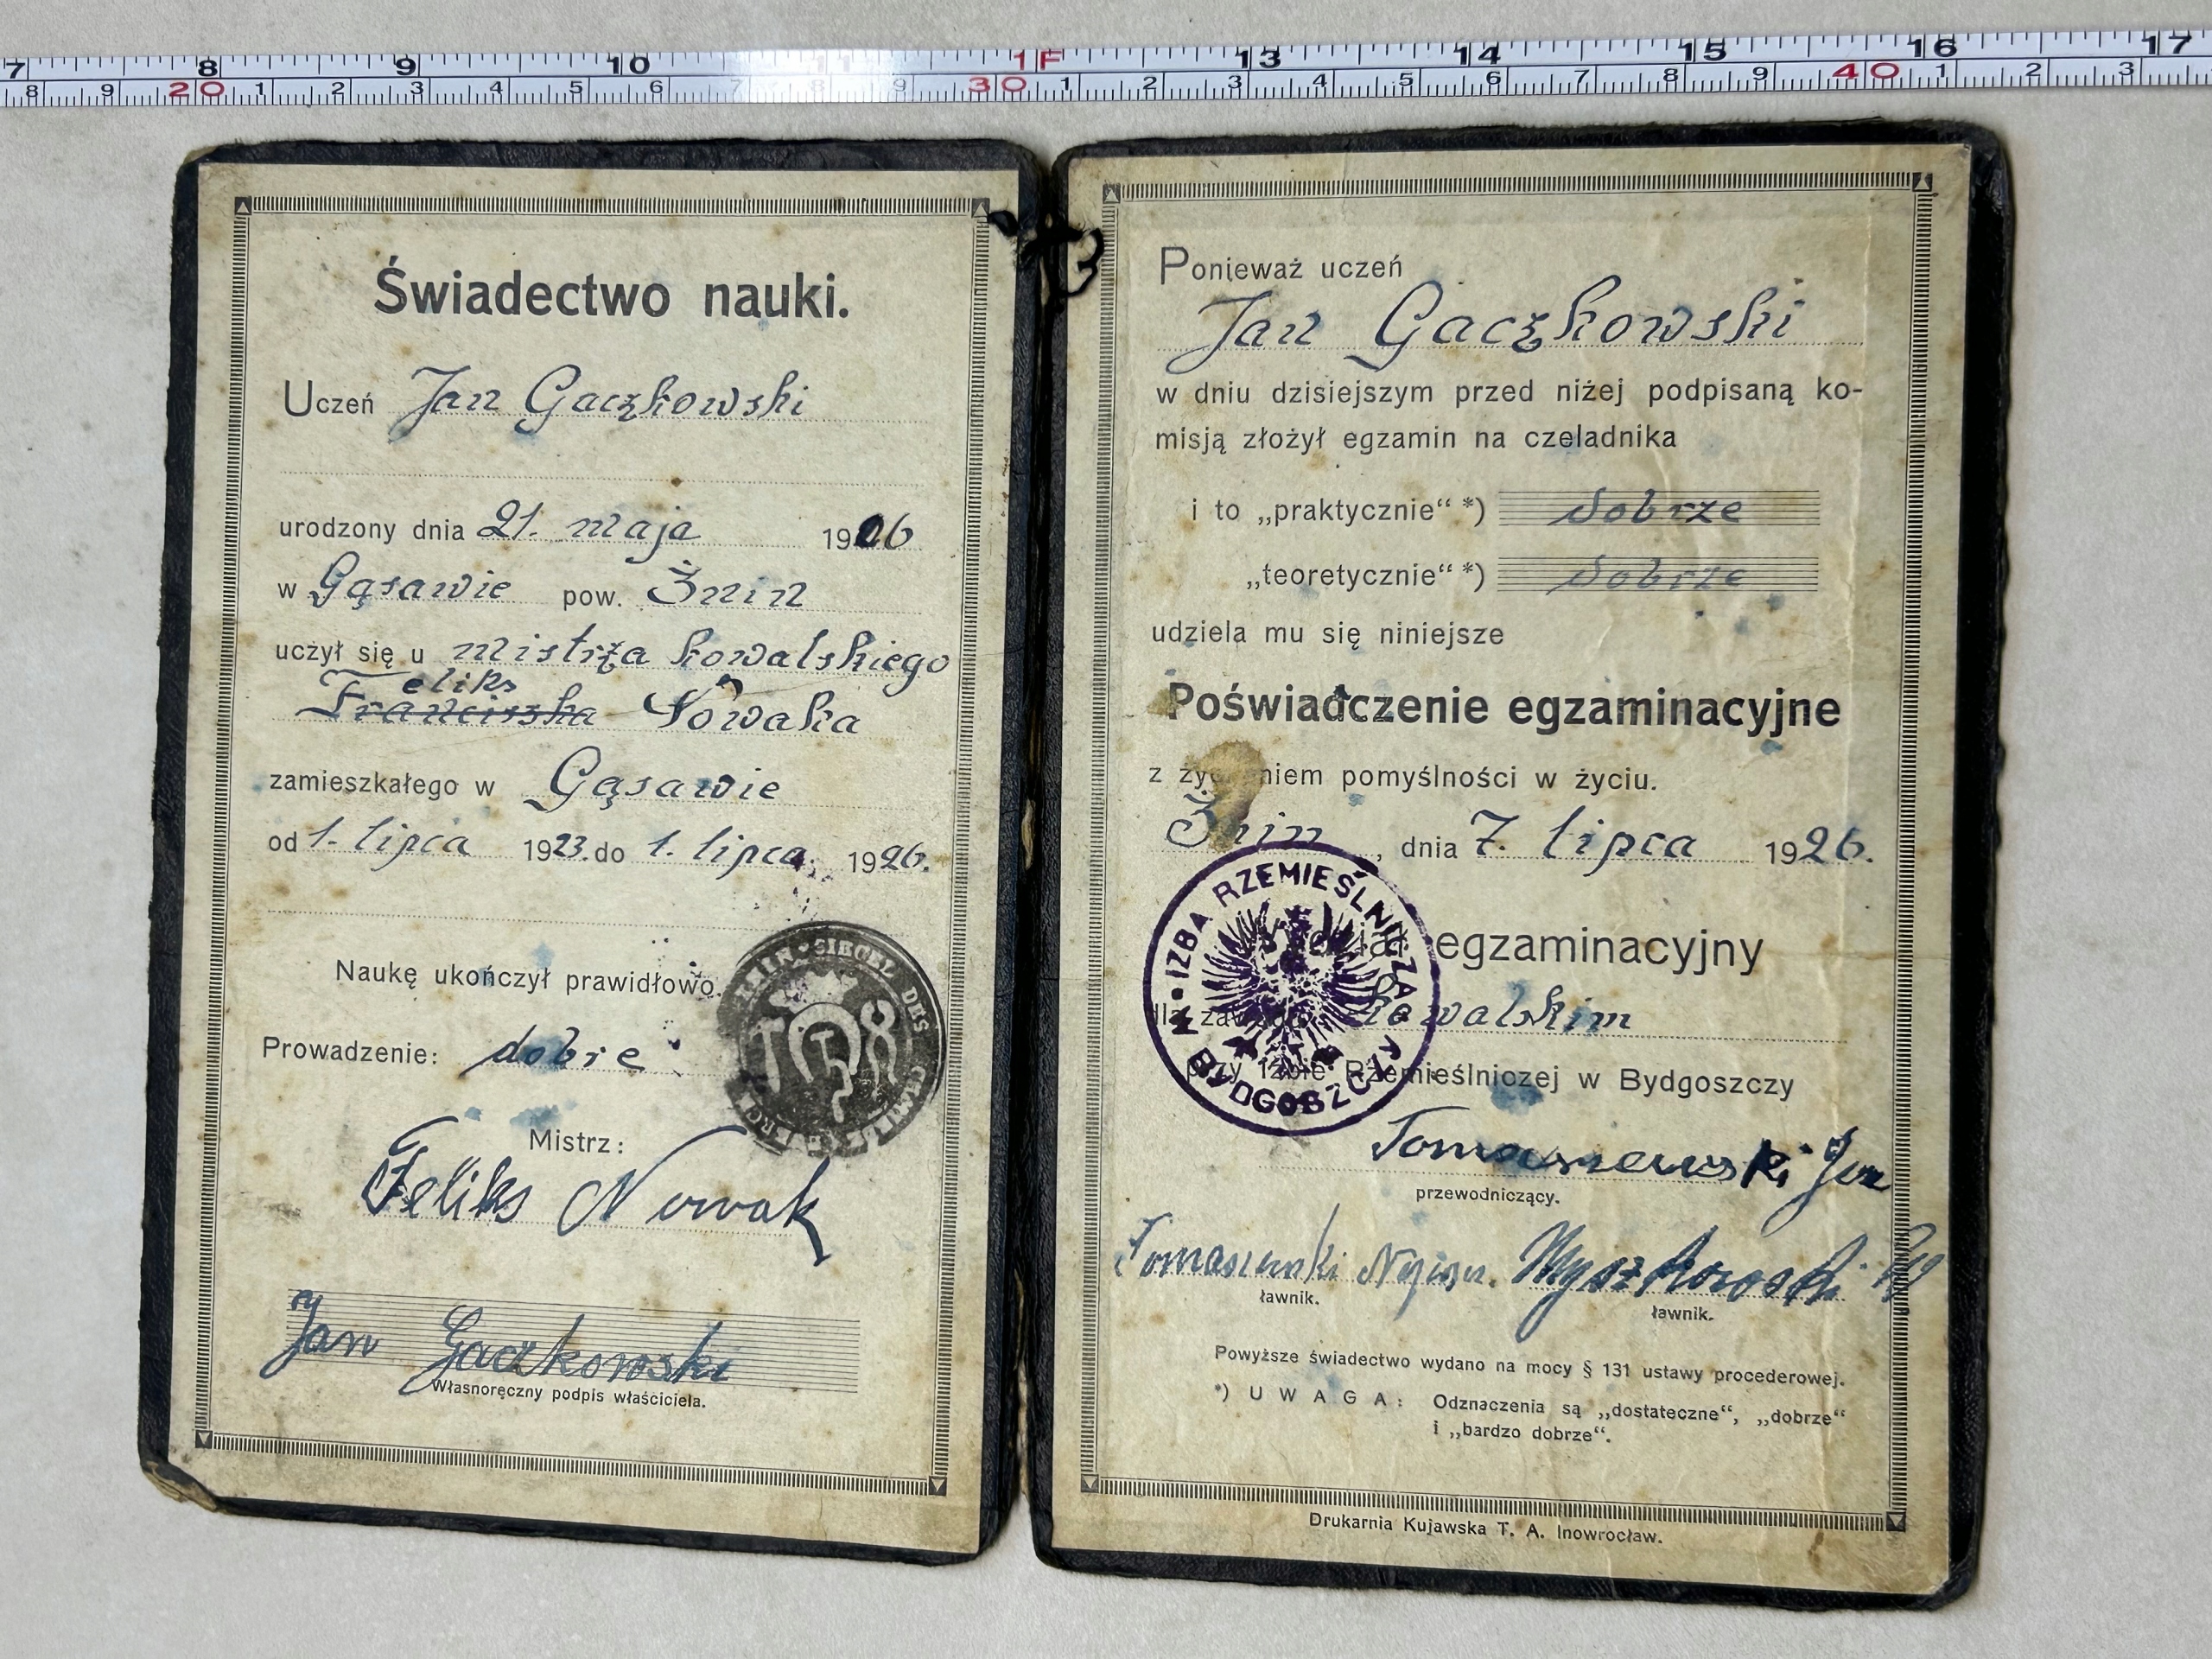 7 8 9 10 11 1F 13 14 15 16 17
8 9 20 1 2 3 4 5 6 7 8 9 30 1 2 3 4 5 6 7 8 9 40 1 2 3
Świadectwo nauki.
Uczeń Jan Gaczkowski
urodzony dnia 21. maja 1906
w Gąsawie pow. Żnin
uczył się u mistrza kowalskiego
eliks
Franciszka Nowaka
zamieszkałego w Gąsawie
od 1. lipca 1923. do 1. lipca 1926.
Naukę ukończył prawidłowo.
Prowadzenie: dobre
SIEGEL DES
Mistrz:
Feliks Nowak
Jan Gaczkowski
Własnoręczny podpis właściciela.
Ponieważ uczeń
Jan Gaczkowski
w dniu dzisiejszym przed niżej podpisaną ko-
misją złożył egzamin na czeladnika
i to „praktycznie“ *) dobrze
„teoretycznie“ *) dobrze
udziela mu się niniejsze
Poświadczenie egzaminacyjne
z życzeniem pomyślności w życiu.
Żnin, dnia 7. lipca 1926.
IZBA RZEMIEŚLNICZA W BYDGOSZCZY
Wydział egzaminacyjny
dla zawodu kowalskim
przy Izbie Rzemieślniczej w Bydgoszczy
Tomaszewski Jan
przewodniczący.
Tomaszewski Myszkowski
ławnik. ławnik.
Powyższe świadectwo wydano na mocy § 131 ustawy procederowej.
*) UWAGA: Odznaczenia są „dostateczne“, „dobrze“
i „bardzo dobrze“.
Drukarnia Kujawska T. A. Inowrocław.